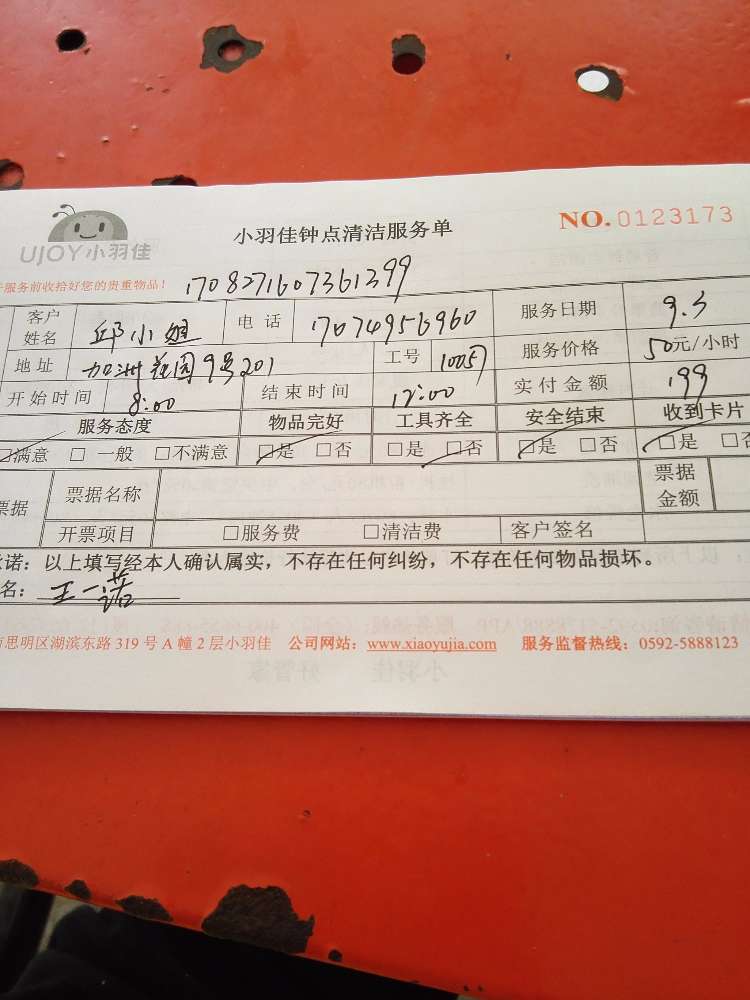 UJOY小羽佳
小羽佳钟点清洁服务单
NO.0123173
服务前收拾好您的贵重物品！
1708271607361399
客户姓名 邱小姐 电话 17074956960 服务日期 9.3
地址 加洲花园9号201 工号 10057 服务价格 50元/小时
开始时间 8:00 结束时间 12:00 实付金额 199
服务态度 物品完好 工具齐全 安全结束 收到卡片
□满意 □一般 □不满意 □是 □否 □是 □否 □是 □否 □是 □
票据 票据名称 票据金额
开票项目 □服务费 □清洁费 客户签名
诺：以上填写经本人确认属实，不存在任何纠纷，不存在任何物品损坏。
名：王一诺
思明区湖滨东路319号A幢2层小羽佳 公司网站：www.xiaoyujia.com 服务监督热线：0592-5888123